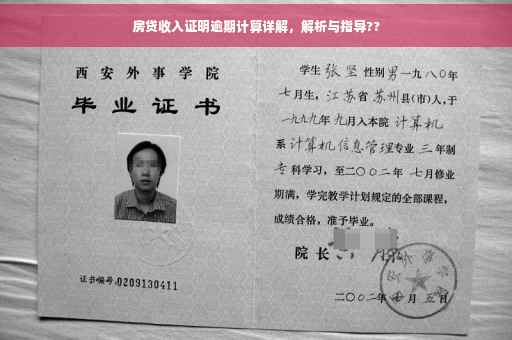 房贷收入证明逾期计算详解，解析与指导??
西安外事学院
毕业证书
证书编号:0209130411
学生 张坚 性别 男 一九八〇年
七月生，江苏省 苏州县(市)人,于
一九九九年 九月入本院 计算机
系 计算机信息管理专业 三 年制
专科学习，至二〇〇二年 七月修业
期满，学完教学计划规定的全部课程，
成绩合格，准予毕业。
院长
二〇〇二年 月 五日